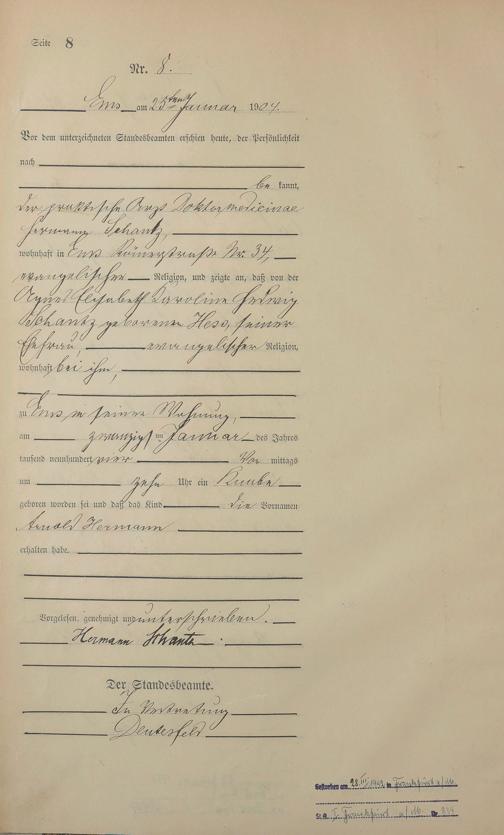 Seite 8
Nr. 8.
Ems am 25ten Januar 1904.
Vor dem unterzeichneten Standesbeamten erschien heute, der Persönlichkeit
nach
be kannt,
der praktische Arzt Doktor medicinae
Hermann Schantz,
wohnhaft in Ems Römerstraße Nr. 34,
evangelischer Religion, und zeigte an, daß von der
Agnes Elisabeth Karoline Hedwig
Schantz geborenen Hess, seiner
Ehefrau, evangelischer Religion,
wohnhaft bei ihm,
zu Ems in seiner Wohnung,
am zwanzigsten Januar des Jahres
tausend neunhundert vier Vor mittags
um zehn Uhr ein Knabe
geboren worden sei und daß das Kind die Vornamen
Arnold Hermann
erhalten habe.
Vorgelesen, genehmigt und unterschrieben.
Hermann Schantz.
Der Standesbeamte.
In Vertretung
Deutesfeld
Gestorben am 28. III. in Frankfurt a/M.
St.A. I Frankfurt a/M. Nr.